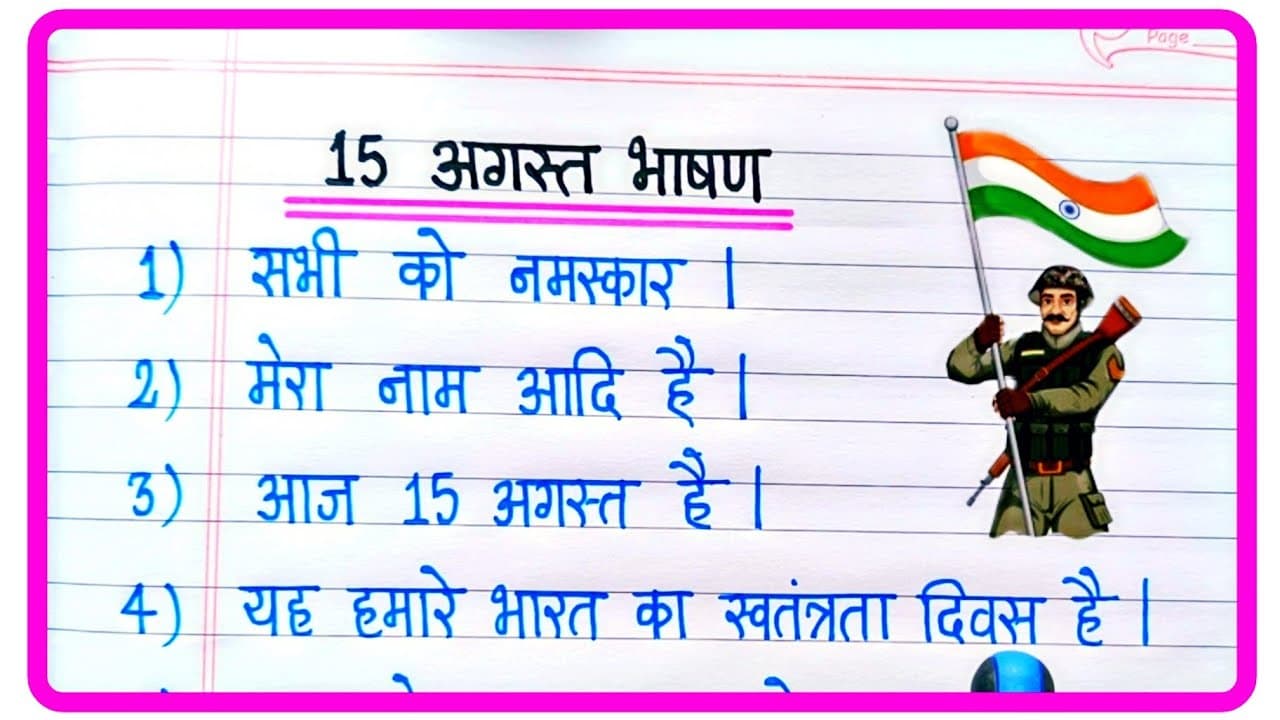 Page
15 अगस्त भाषण
1) सभी को नमस्कार |
2) मेरा नाम आदि है |
3) आज 15 अगस्त है |
4) यह हमारे भारत का स्वतंत्रता दिवस है |